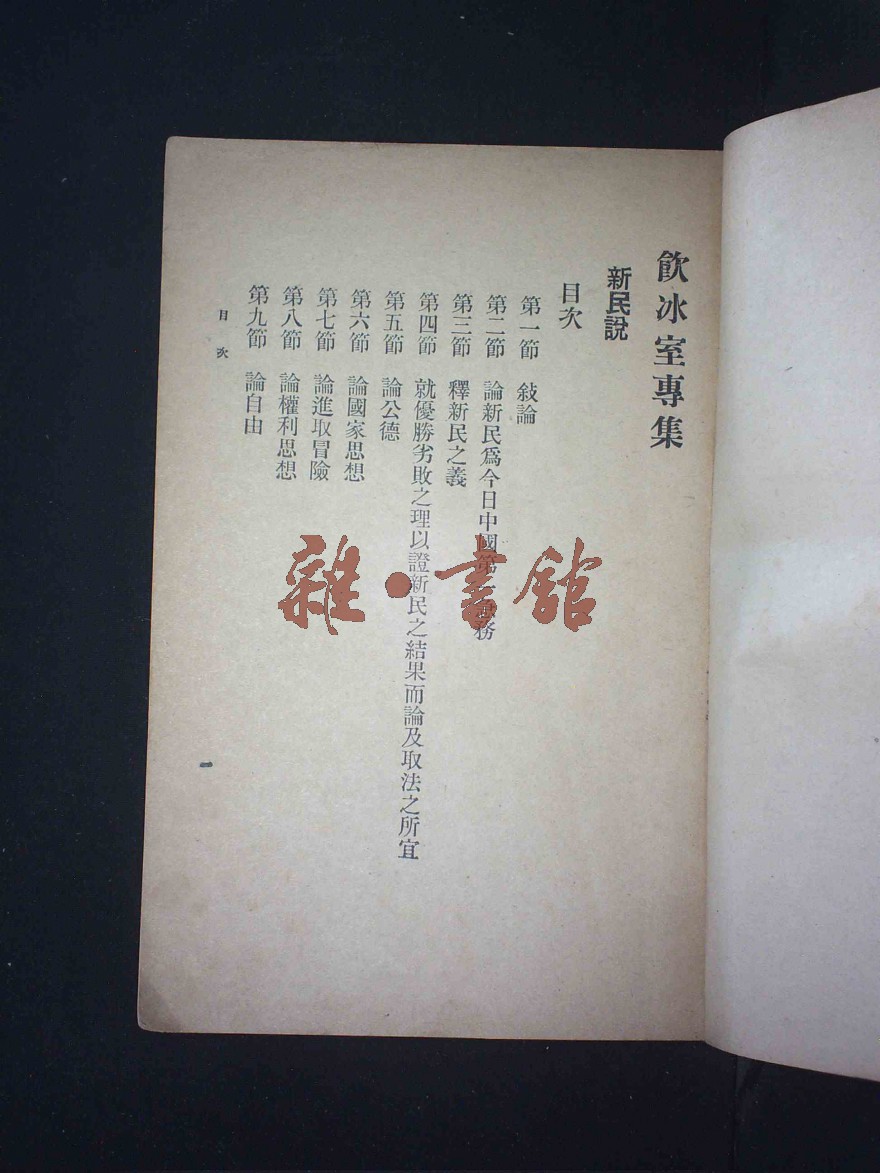 飲冰室專集
新民說
目次
第一節 敍論
第二節 論新民爲今日中國第一急務
第三節 釋新民之義
第四節 就優勝劣敗之理以證新民之結果而論及取法之所宜
第五節 論公德
第六節 論國家思想
第七節 論進取冒險
第八節 論權利思想
第九節 論自由
目次
一
雜·書館